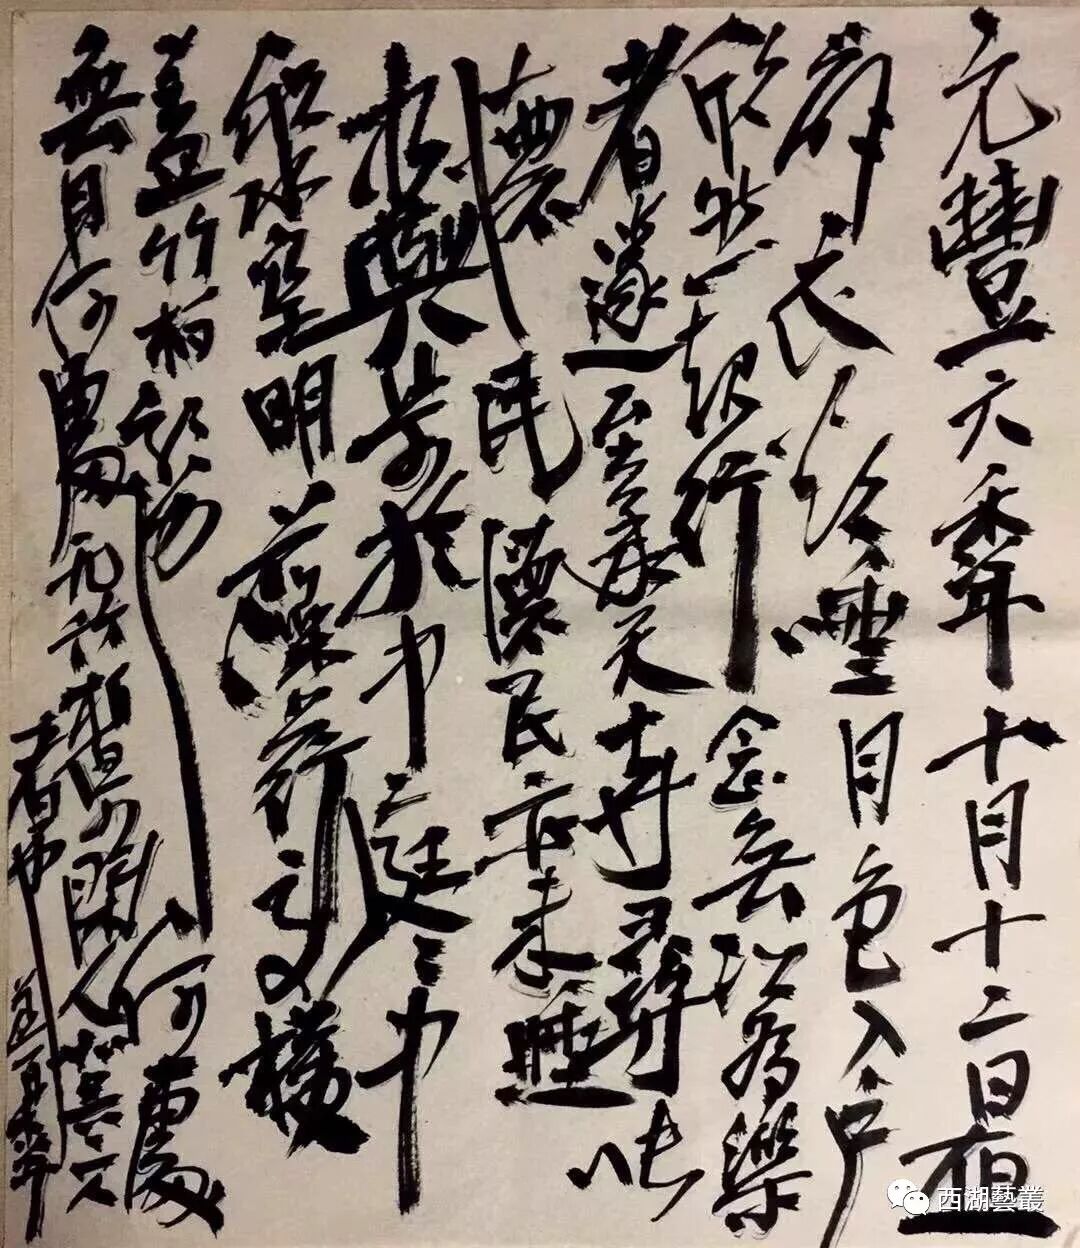 元豐六年十月十二日夜
解衣欲睡月色入戶
欣然起行念無為樂
者遂至承天寺尋張
懷民懷民亦未睡
相與步於中庭々中
積水空明藻荇交橫
蓋竹柏影也何處
無月何處無竹柏少閑人如吾二人
者也
西湖藝叢